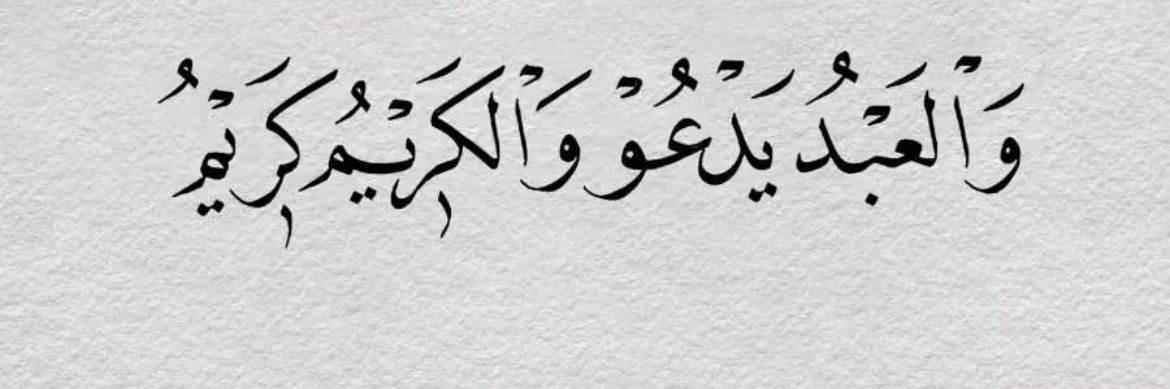 وَاْلعَبْدُ يَدْعُوْ وَاْلكَرِيْمُ كَرِيْمُ